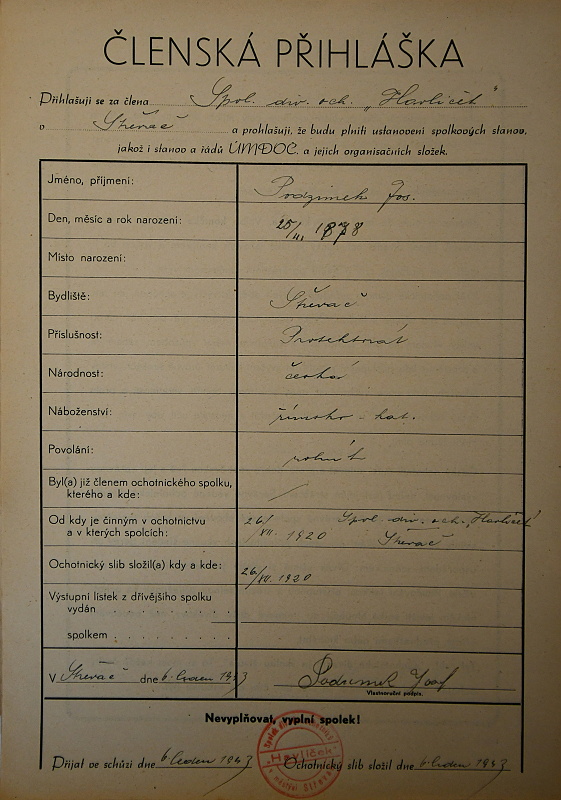 ČLENSKÁ PŘIHLÁŠKA
Přihlašuji se za člena Spol. div. och. „Havlíček“
v Střevač a prohlašuji, že budu plniti ustanovení spolkových stanov,
jakož i stanov a řádů ÚMDOČ. a jejich organisačních složek.
Jméno, příjmení: Podzimek Jos.
Den, měsíc a rok narození: 25/II. 1878
Místo narození:
Bydliště: Střevač
Příslušnost: Protektorát
Národnost: česká
Náboženství: římsko-kat.
Povolání: rolník
Byl(a) již členem ochotnického spolku,
kterého a kde: /
Od kdy je činným v ochotnictvu 26/ Spol. div. och. „Havlíček“
a v kterých spolcích: VII. 1920 Střevač
Ochotnický slib složil(a) kdy a kde: 26/VII. 1920
Výstupní lístek z dřívějšího spolku
vydán . . . . . . . . .
spolkem . . . . . . . . .
V Střevač dne 6. leden 1943 Podzimek Josef
Vlastnoruční podpis.
Nevyplňovat, vyplní spolek!
"Havlíček"
Přijat ve schůzi dne 6. leden 1943 Ochotnický slib složil dne 6. leden 1943